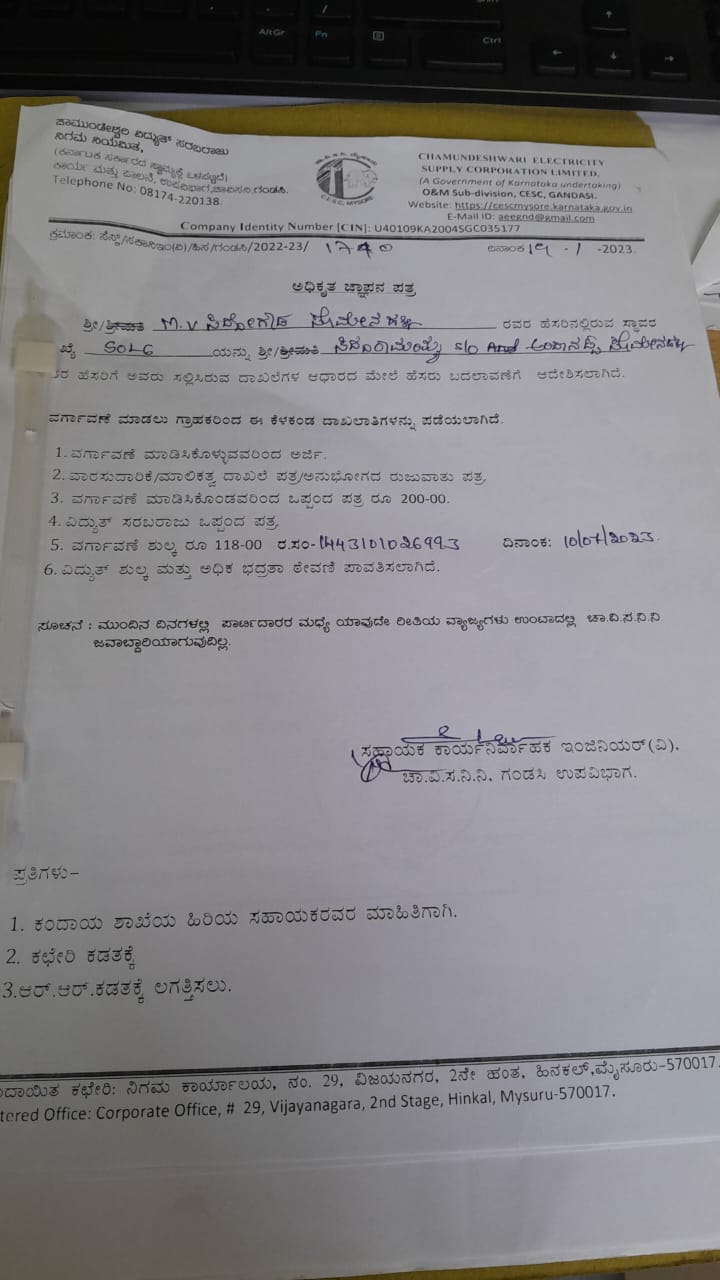 AltGr
Fn
Ctrl
ಚಾಮುಂಡೇಶ್ವರಿ ವಿದ್ಯುತ್ ಸರಬರಾಜು
ನಿಗಮ ನಿಯಮಿತ,
(ಕರ್ನಾಟಕ ಸರ್ಕಾರದ ಸ್ವಾಮ್ಯಕ್ಕೆ ಒಳಪಟ್ಟಿದೆ)
ಕಾರ್ಯ ಮತ್ತು ಪಾಲನೆ, ಉಪವಿಭಾಗ,ಚಾವಿಸನಿ,ಗಂಡಸಿ.
Telephone No: 08174-220138
C.E.S.C, MYSORE
CHAMUNDESHWARI ELECTRICITY
SUPPLY CORPORATION LIMITED.
(A Government of Karnataka undertaking)
O&M Sub-division, CESC, GANDASI.
Website: https://cescmysore.karnataka.gov.in
E-Mail ID: aeegnd@gmail.com
Company Identity Number [CIN]: U40109KA2004SGC035177
ಕ್ರಮಾಂಕ: ಸೆಸ್ಕ್/ಸಕಾನಿಇಂ(ವಿ)/ಹಿಸ/ಗಂಡಸಿ/2022-23/ 1740 ದಿನಾಂಕ 19-1-2023.
ಅಧಿಕೃತ ಜ್ಞಾಪನ ಪತ್ರ
ಶ್ರೀ/ಶ್ರೀಮತಿ M.V ರವರ ಹೆಸರಿನಲ್ಲಿರುವ ಸ್ಥಾವರ
ಖ್ಯೆ SOLG ಯನ್ನು ಶ್ರೀ/ಶ್ರೀಮತಿ S/o
ವರ ಹೆಸರಿಗೆ ಅವರು ಸಲ್ಲಿಸಿರುವ ದಾಖಲೆಗಳ ಆಧಾರದ ಮೇಲೆ ಹೆಸರು ಬದಲಾವಣೆಗೆ ಆದೇಶಿಸಲಾಗಿದೆ.
ವರ್ಗಾವಣೆ ಮಾಡಲು ಗ್ರಾಹಕರಿಂದ ಈ ಕೆಳಕಂಡ ದಾಖಲಾತಿಗಳನ್ನು ಪಡೆಯಲಾಗಿದೆ.
1. ವರ್ಗಾವಣೆ ಮಾಡಿಸಿಕೊಳ್ಳುವವರಿಂದ ಅರ್ಜಿ.
2. ವಾರಸುದಾರಿಕೆ/ಮಾಲಿಕತ್ವ ದಾಖಲೆ ಪತ್ರ/ಅನುಭೋಗದ ರುಜುವಾತು ಪತ್ರ.
3. ವರ್ಗಾವಣೆ ಮಾಡಿಸಿಕೊಂಡವರಿಂದ ಒಪ್ಪಂದ ಪತ್ರ ರೂ 200-00.
4. ವಿದ್ಯುತ್ ಸರಬರಾಜು ಒಪ್ಪಂದ ಪತ್ರ.
5. ವರ್ಗಾವಣೆ ಶುಲ್ಕ ರೂ 118-00 ರ.ಸಂ-1443101026993 ದಿನಾಂಕ: 10/07/2023.
6. ವಿದ್ಯುತ್ ಶುಲ್ಕ ಮತ್ತು ಅಧಿಕ ಭದ್ರತಾ ಠೇವಣಿ ಪಾವತಿಸಲಾಗಿದೆ.
ಸೂಚನೆ : ಮುಂದಿನ ದಿನಗಳಲ್ಲಿ ಪಾರ್ಟಿದಾರರ ಮಧ್ಯೆ ಯಾವುದೇ ರೀತಿಯ ವ್ಯಾಜ್ಯಗಳು ಉಂಟಾದಲ್ಲಿ ಚಾ.ವಿ.ಸ.ನಿ.ನಿ
ಜವಾಬ್ದಾರಿಯಾಗುವುದಿಲ್ಲ.
ಸಹಾಯಕ ಕಾರ್ಯನಿರ್ವಾಹಕ ಇಂಜಿನಿಯರ್(ವಿ).
ಚಾ.ವಿ.ಸ.ನಿ.ನಿ, ಗಂಡಸಿ ಉಪವಿಭಾಗ.
ಪ್ರತಿಗಳು-
1. ಕಂದಾಯ ಶಾಖೆಯ ಹಿರಿಯ ಸಹಾಯಕರವರ ಮಾಹಿತಿಗಾಗಿ.
2. ಕಛೇರಿ ಕಡತಕ್ಕೆ
3.ಆರ್.ಆರ್.ಕಡತಕ್ಕೆ ಲಗತ್ತಿಸಲು.
ದಾಯಿತ ಕಛೇರಿ: ನಿಗಮ ಕಾರ್ಯಾಲಯ, ನಂ. 29, ವಿಜಯನಗರ, 2ನೇ ಹಂತ, ಹಿನಕಲ್,ಮೈಸೂರು-570017.
tered Office: Corporate Office, # 29, Vijayanagara, 2nd Stage, Hinkal, Mysuru-570017.